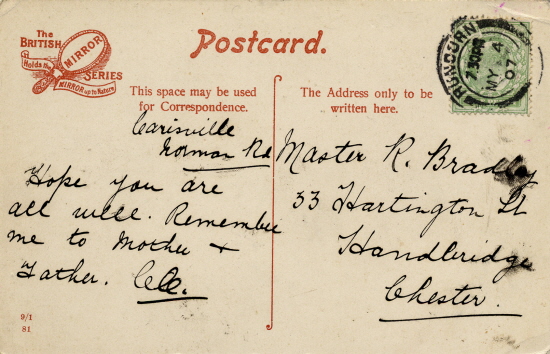 The
BRITISH
MIRROR
Holds the
SERIES
MIRROR up to Nature
Postcard.
RUNCORN
7.30PM
MY 4
07
This space may be used
for Correspondence.
The Address only to be
written here.
Carisville
Norman Rd
Hope you are
all well. Remember
me to Mother +
Father.
Master R. Bradley
33 Hartington St
Handbridge
Chester.
9/1
81